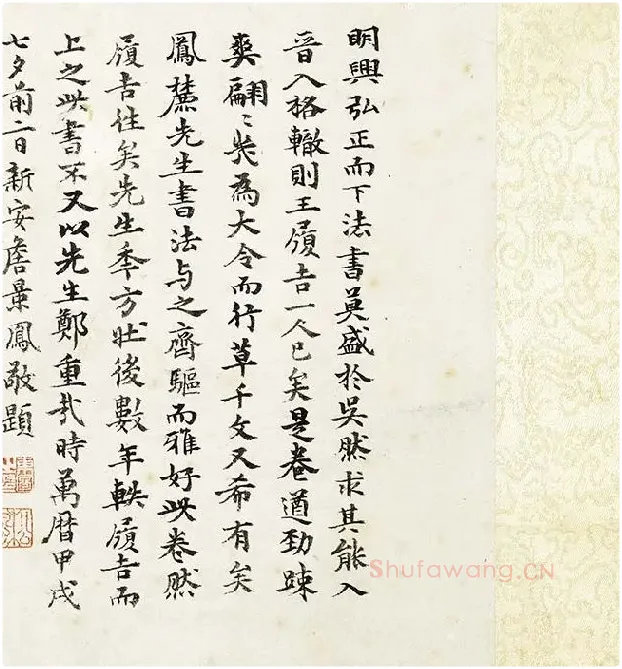 明興弘正而下法書莫盛於吳然求其能入
晉人格轍則王履吉一人已矣是卷遒勁踈
爽翩〻然為大令而行草千文又希有矣
鳳麓先生書法与之齊驅而雅好此卷然
履吉往矣先生年方壯後數年軼履吉而
上之此書不又以先生鄭重哉時萬曆甲戌
七夕前二日新安詹景鳳敬題
Shufawang.CN